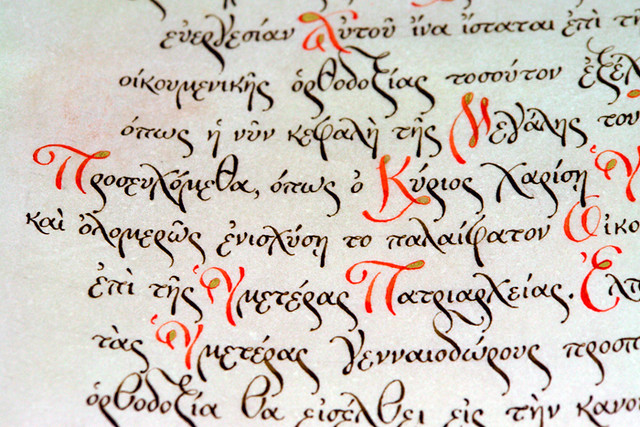 εὐεργεσίαν Αὐτοῦ ἵνα ἵσταται ἐπὶ
οἰκουμενικῆς ὀρθοδοξίας τοσούτον
ὅπως ἡ νῦν κεφαλὴ τῆς Μεγάλης τοῦ
Προσευχόμεθα, ὅπως ὁ Κύριος χαρίσῃ
καὶ ὁλομερῶς ἐνισχύσῃ τὸ παλαίφατον Οἰκο
ἐπὶ τῆς Ὑμετέρας Πατριαρχείας. Ἐλπ
τὰς Ὑμετέρας γενναιοδώρους προσπ
ὀρθοδοξία θα εἰσέλθει εἰς τὴν κανο